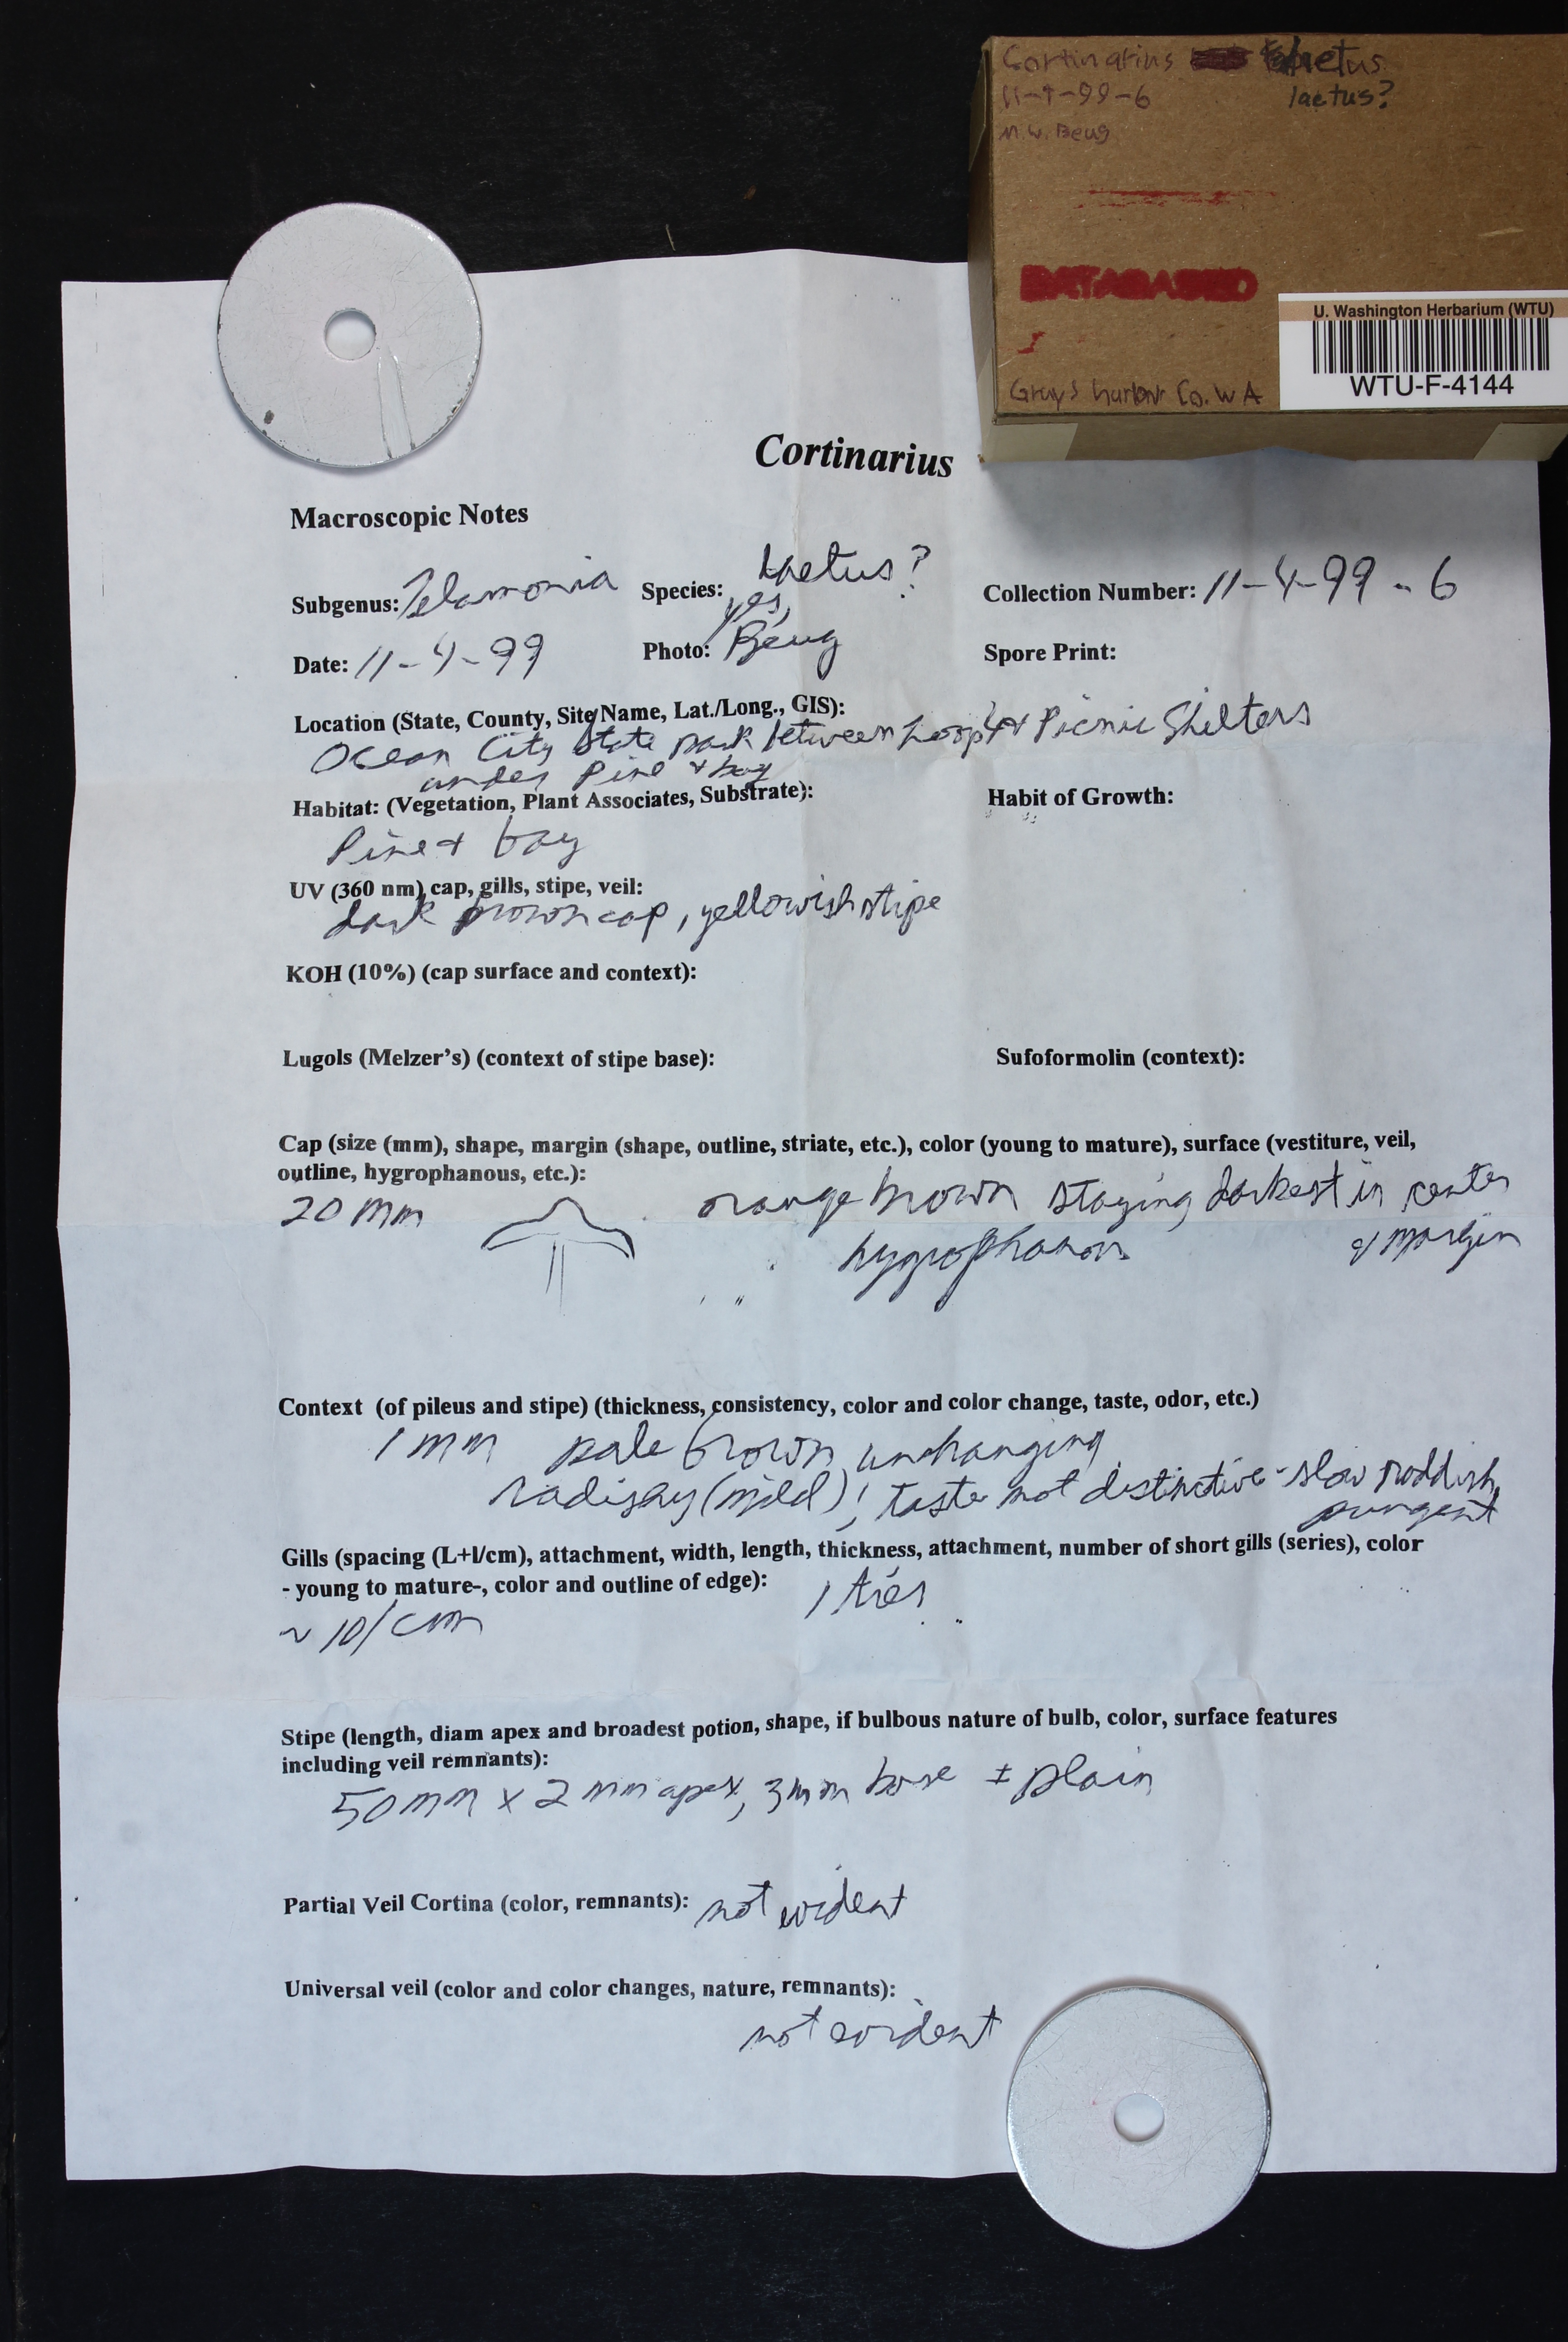 Cortinarius laetus
11-4-99-6 laetus?
M.W. Beug
DATABASED
U. Washington Herbarium (WTU)
WTU-F-4144
Grays harbor Co. WA
Cortinarius
Macroscopic Notes
Subgenus: Telamonia Species: laetus? Collection Number: 11-4-99-6
Date: 11-4-99 Photo: yes, Beug Spore Print:
Location (State, County, Site/Name, Lat./Long., GIS):
Ocean City State park between Loop & Picnic Shelters
under Pine & bay
Habitat: (Vegetation, Plant Associates, Substrate): Habit of Growth:
Pine + bay
UV (360 nm) cap, gills, stipe, veil:
dark brown cap, yellowish stipe
KOH (10%) (cap surface and context):
Lugols (Melzer's) (context of stipe base): Sufoformolin (context):
Cap (size (mm), shape, margin (shape, outline, striate, etc.), color (young to mature), surface (vestiture, veil,
outline, hygrophanous, etc.):
20 mm orange brown staying darkest in center
hygrophanous & margin
Context (of pileus and stipe) (thickness, consistency, color and color change, taste, odor, etc.)
1 mm pale brown unchanging
radishy (mild); taste not distinctive - slow raddish,
pungent
Gills (spacing (L+l/cm), attachment, width, length, thickness, attachment, number of short gills (series), color
- young to mature-, color and outline of edge): 1 tier
~ 10/cm
Stipe (length, diam apex and broadest potion, shape, if bulbous nature of bulb, color, surface features
including veil remnants):
50 mm x 2 mm apex, 3 mm base ± plain
Partial Veil Cortina (color, remnants): not evident
Universal veil (color and color changes, nature, remnants):
not evident